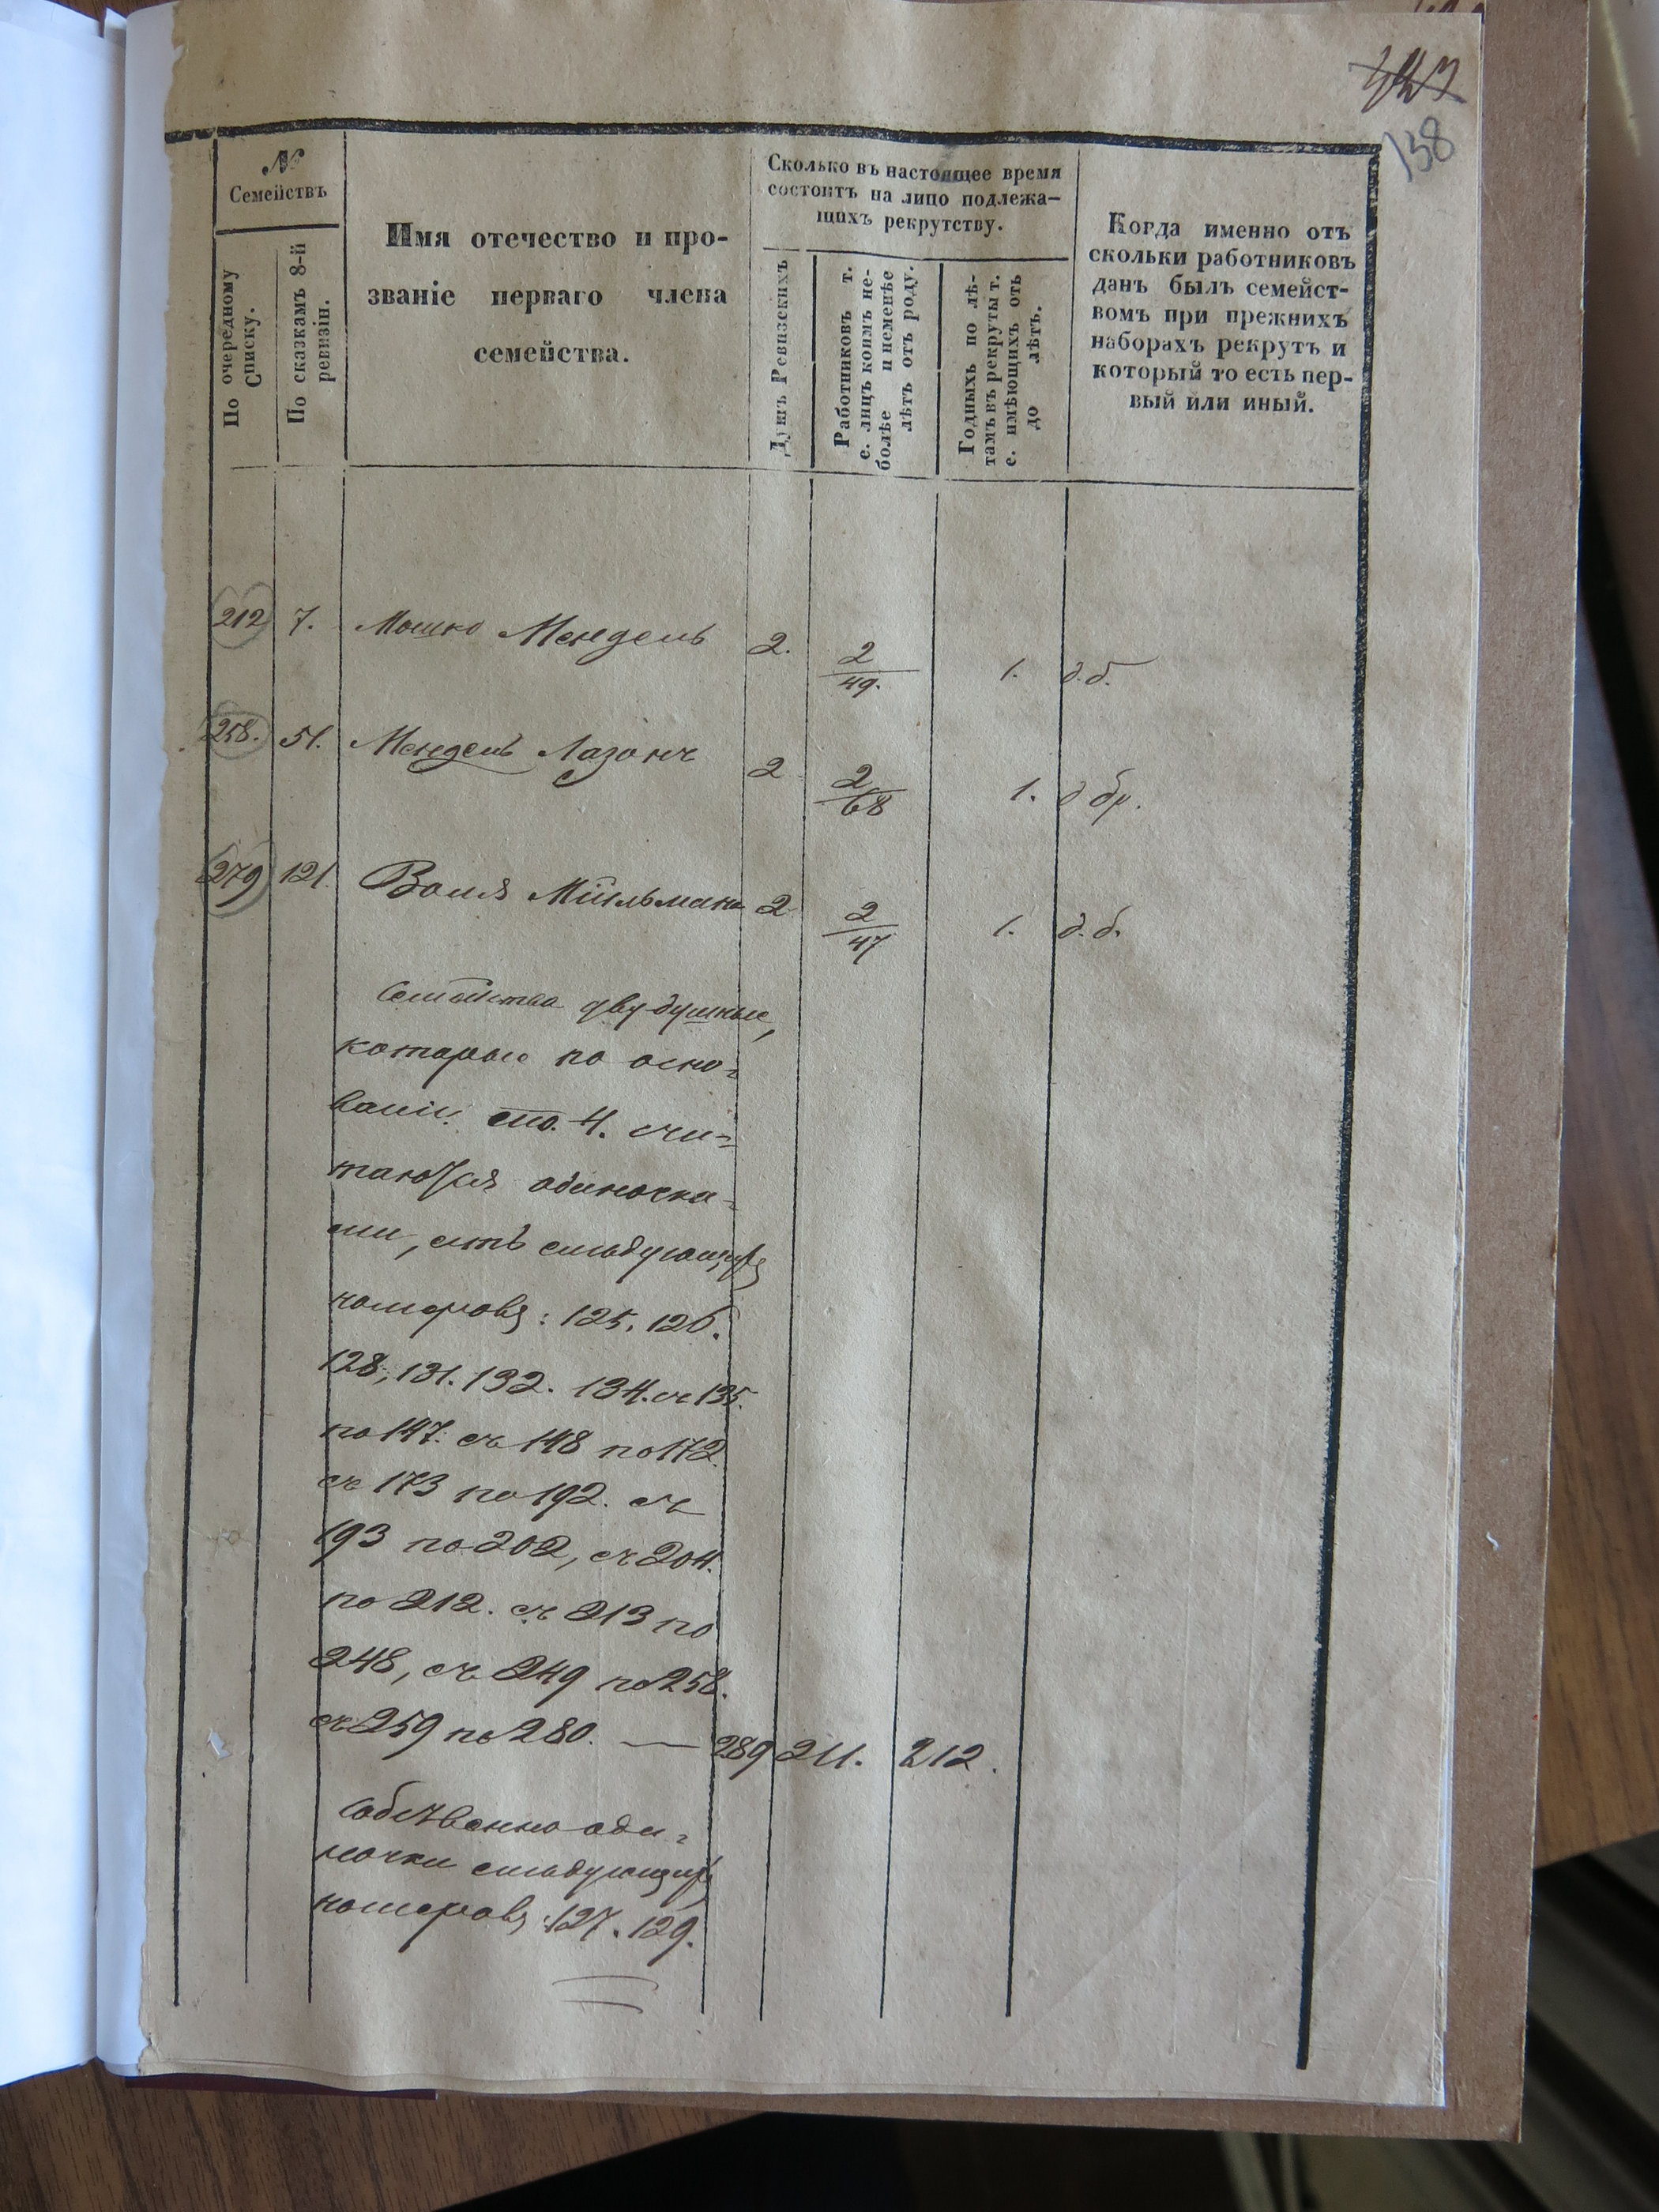 138
№
Семействъ
По очередному
Списку.
По сказкамъ 8-й
ревизіи.
Имя отечество и про-
званіе перваго члена
семейства.
Сколько въ настоящее время
состоитъ на лицо подлежа-
щихъ рекрутству.
Душъ Ревизскихъ
Работниковъ т.
е. лицъ коимъ не-
болѣе и неменѣе
лѣтъ отъ роду.
Годныхъ по лѣ-
тамъ въ рекруты т.
е. имѣющихъ отъ
до лѣтъ.
Когда именно отъ
скольки работниковъ
данъ былъ семейст-
вомъ при прежнихъ
наборахъ рекрутъ и
который то есть пер-
вый или иный.
212 7. Мошко Мендель 2. 2/49. 1. д.б.
258. 51. Мендель 2 2/68 1. д бр.
279 121. 2 2/47 1. д.б.
Семейства двудушные,
которые по осно-
ваніи сто. 4. счи-
таются одиночка-
ми, слѣдующихъ
номеровъ: 125. 126.
128, 131. 132. 134. съ 135.
по 147. съ 148 по 172.
съ 173 по 192. съ
193 по 202, съ 204.
по 212. съ 213 по
248, съ 249 по 258.
съ 259 по 280. — 289 211. 212.
Собственно оди-
ночки слѣдующихъ
номеровъ: 127. 129.